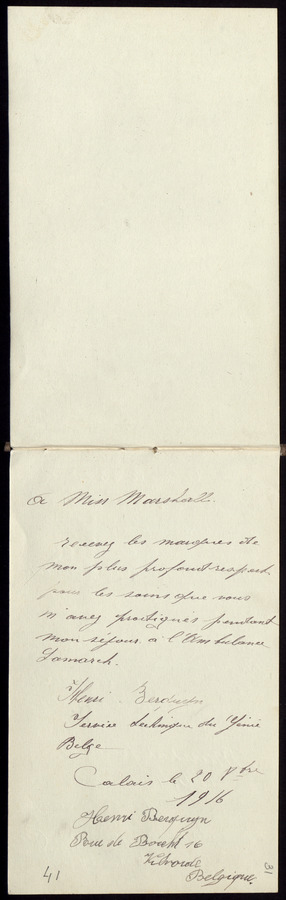 A Miss Marshall.
recevez les marques de
mon plus profond respect
pour les soins que vous
m'avez prodigués pendant
mon séjour à l'Ambulance
Lamarck.
Henri
Service technique du Génie
Belge
Calais le 20 8bre
1916
Henri
Rue de 16
Vilvorde
Belgique.
41
31